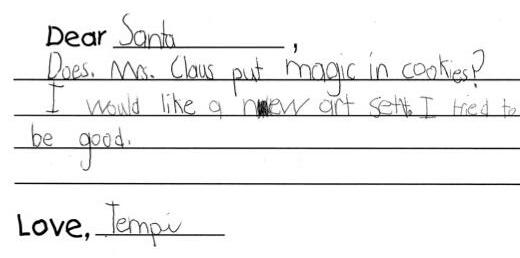 Dear Santa,
Does. Mrs. Claus put magic in cookies?
I would like a new art set. I tried to
be good.
Love, Tempi